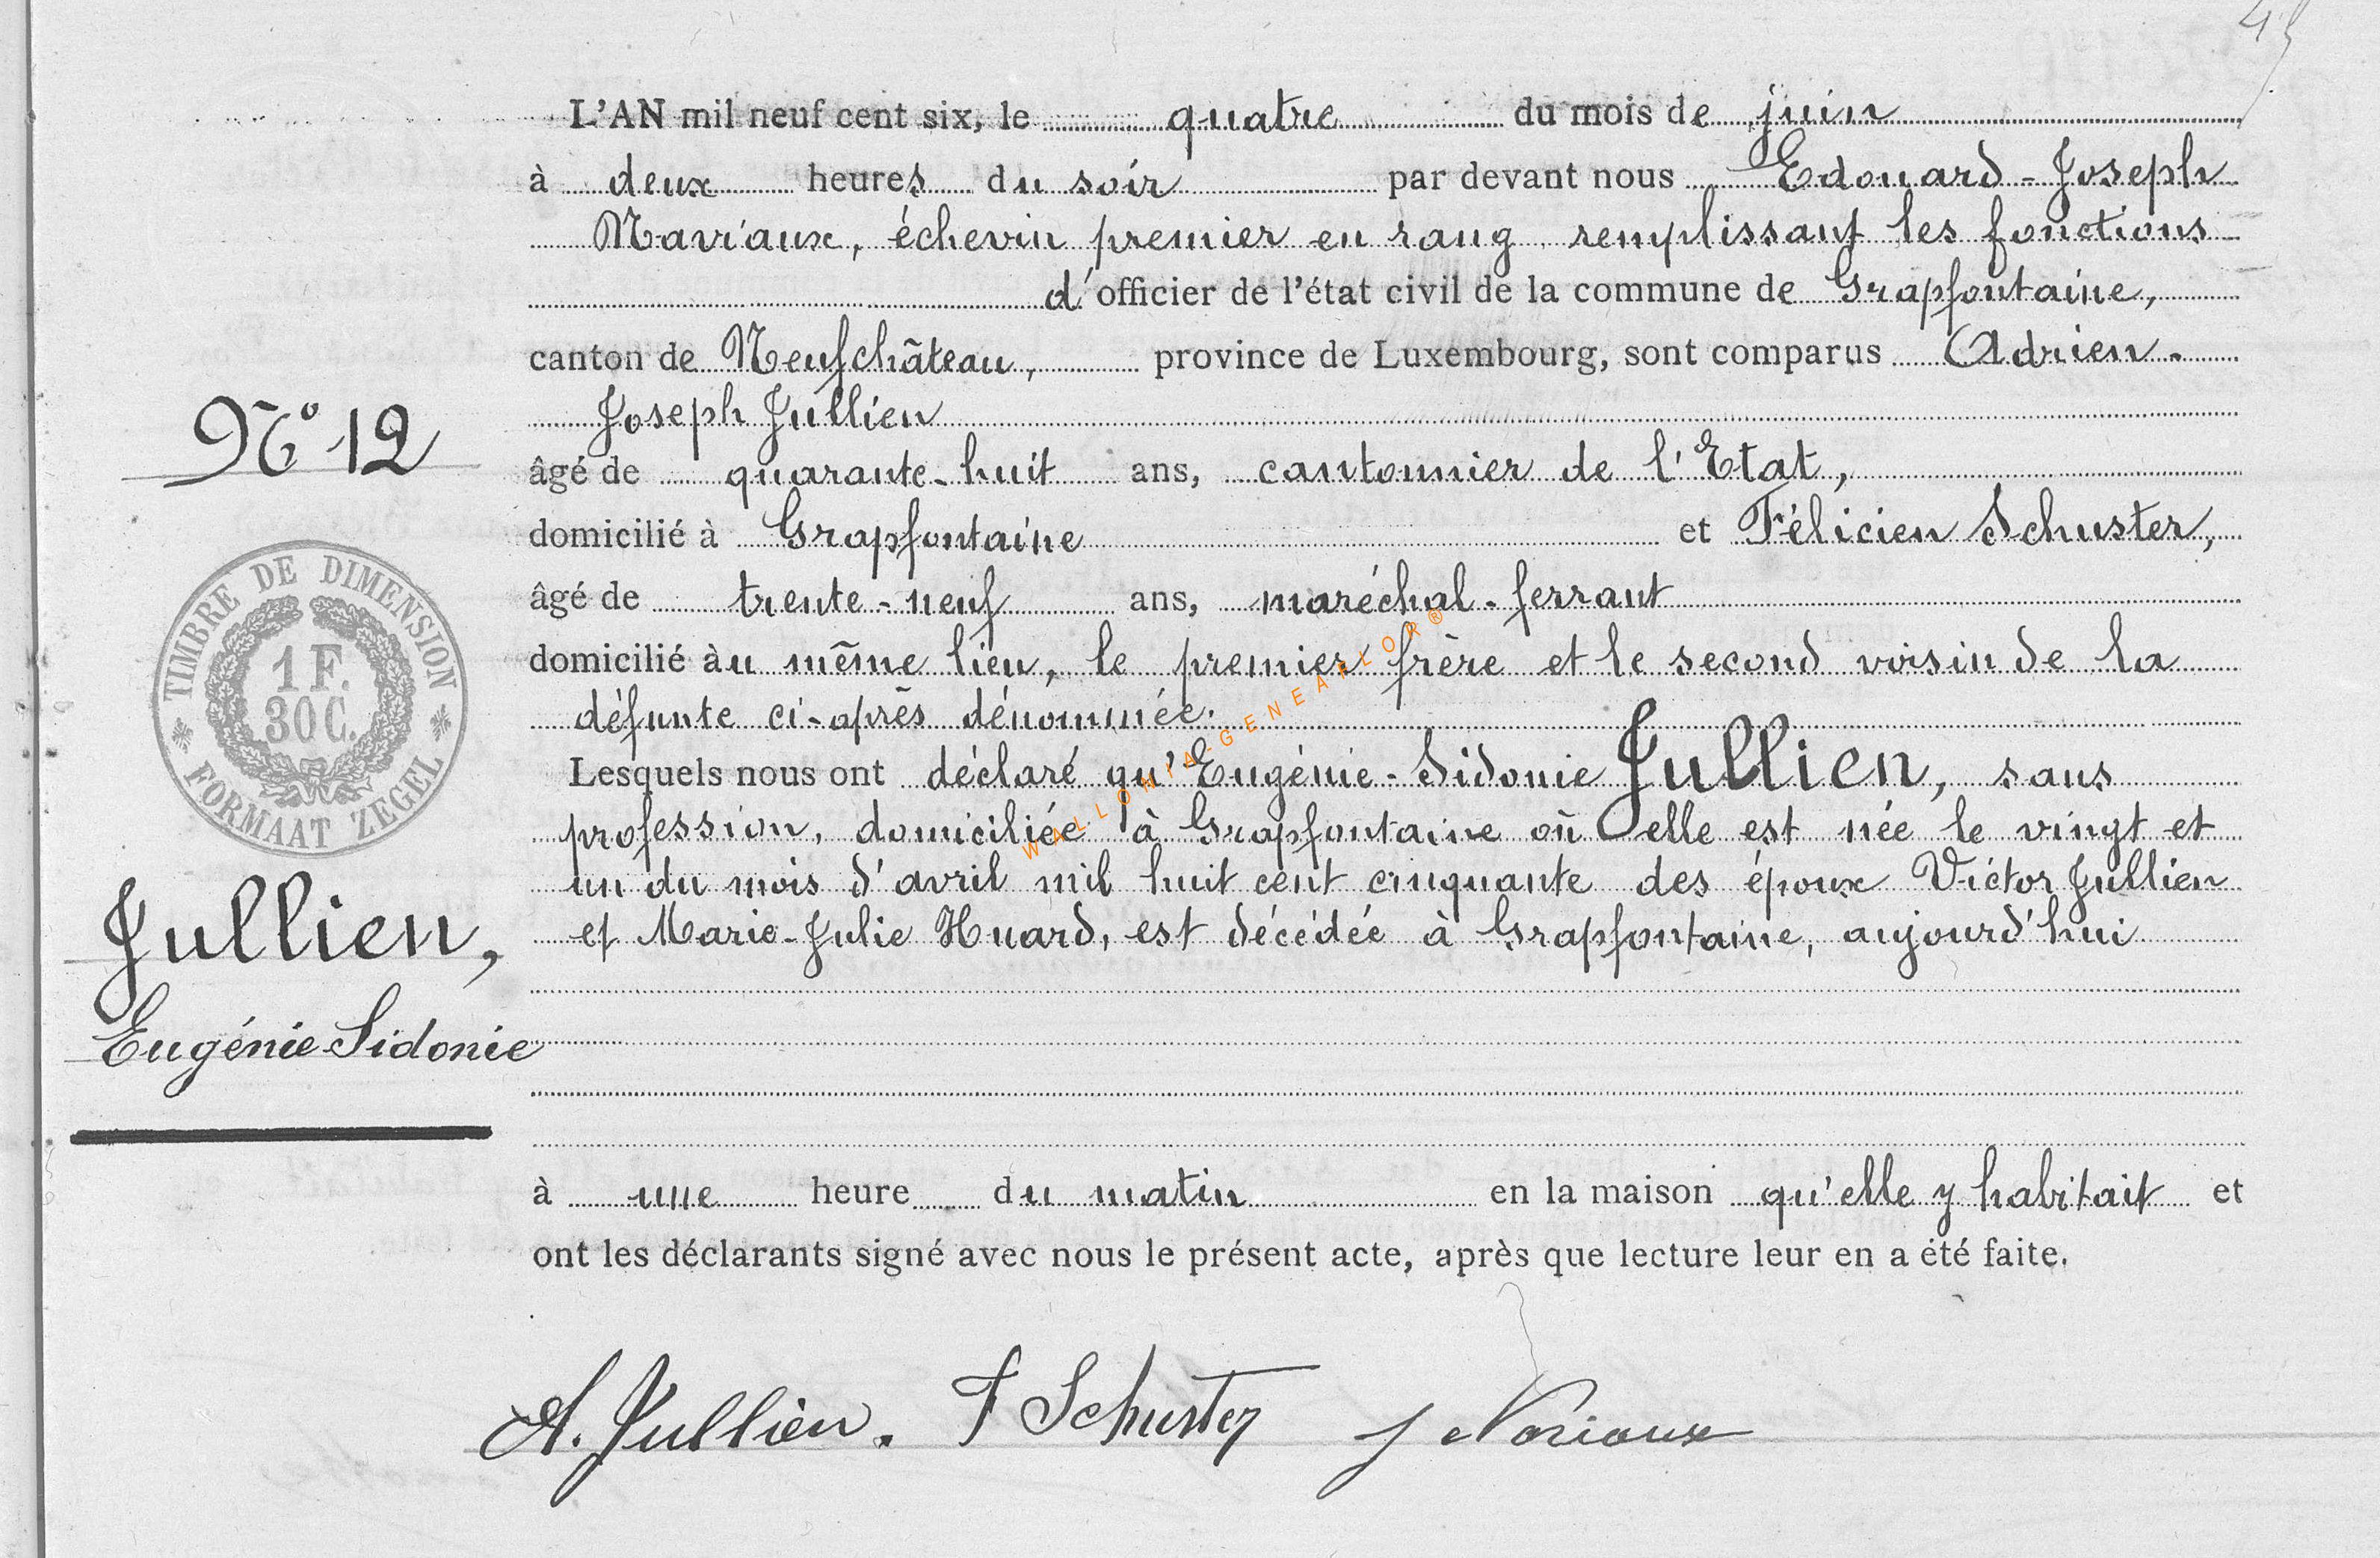 45
L'AN mil neuf cent six, le quatre du mois de juin
à deux heures du soir par devant nous Edouard-Joseph
Naviaux, échevin premier en rang remplissant les fonctions
d'officier de l'état civil de la commune de Grapfontaine,
canton de Neufchâteau, province de Luxembourg, sont comparus Adrien-
Joseph Jullien
âgé de quarante-huit ans, cantonnier de l'Etat,
domicilié à Grapfontaine et Félicien Schuster,
âgé de trente-neuf ans, maréchal-ferrant
domicilié au même lieu, le premier frère et le second voisin de la
défunte ci-après dénommée.
Lesquels nous ont déclaré qu'Eugénie-Sidonie Jullien, sans
profession, domiciliée à Grapfontaine où elle est née le vingt et
un du mois d'avril mil huit cent cinquante des époux Victor Jullien
et Marie-Julie Huard, est décédée à Grapfontaine, aujourd'hui
à une heure du matin en la maison qu'elle y habitait et
ont les déclarants signé avec nous le présent acte, après que lecture leur en a été faite.
A. Jullien. F Schuster
N° 12
TIMBRE DE DIMENSION
1 F.
30 C.
FORMAAT ZEGEL
Jullien,
Eugénie-Sidonie
WALLONIA-GENEALOR®